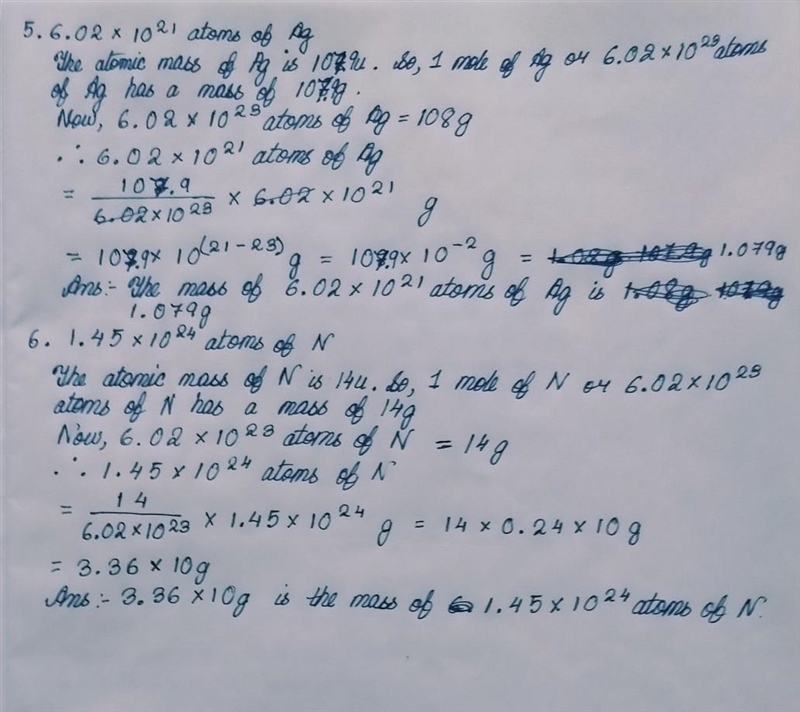 5. 6.02 × 10²¹ atoms of Ag
The atomic mass of Ag is 107.9u. So, 1 mole of Ag or 6.02 × 10²³ atoms
of Ag has a mass of 107.9g.
Now, 6.02 × 10²³ atoms of Ag = 108g
∴ 6.02 × 10²¹ atoms of Ag
= 107.9 / 6.02 × 10²³ × 6.02 × 10²¹ g
= 107.9 × 10⁽²¹⁻²³⁾ g = 107.9 × 10⁻² g = 1.079g
Ans:- The mass of 6.02 × 10²¹ atoms of Ag is
1.079g
6. 1.45 × 10²⁴ atoms of N
The atomic mass of N is 14u. So, 1 mole of N or 6.02 × 10²³
atoms of N has a mass of 14g
Now, 6.02 × 10²³ atoms of N = 14g
∴ 1.45 × 10²⁴ atoms of N
= 14 / 6.02 × 10²³ × 1.45 × 10²⁴ g = 14 × 0.24 × 10g
= 3.36 × 10g
Ans:- 3.36 × 10g is the mass of 1.45 × 10²⁴ atoms of N.